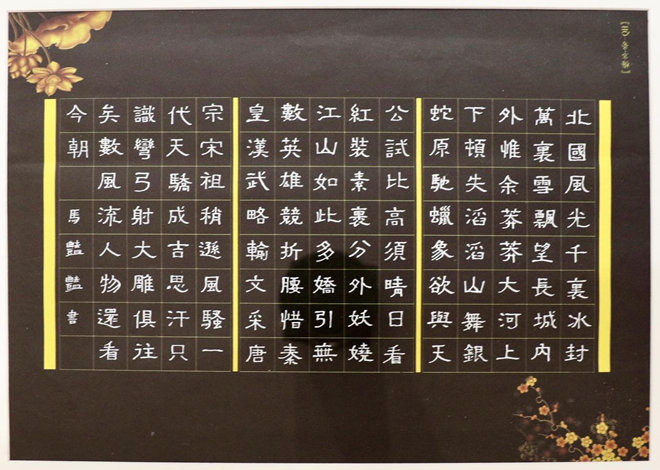 北國風光千裏冰封
萬裏雪飄望長城內
外惟余莽莽大河上
下頓失滔滔山舞銀
蛇原馳蠟象欲與天
公試比高須晴日看
紅裝素裏分外妖嬈
江山如此多嬌引無
數英雄競折腰惜秦
皇漢武略輸文采唐
宗宋祖稍遜風騷一
代天驕成吉思汗只
識彎弓射大雕俱往
矣數風流人物還看
今朝 馬豔豔書